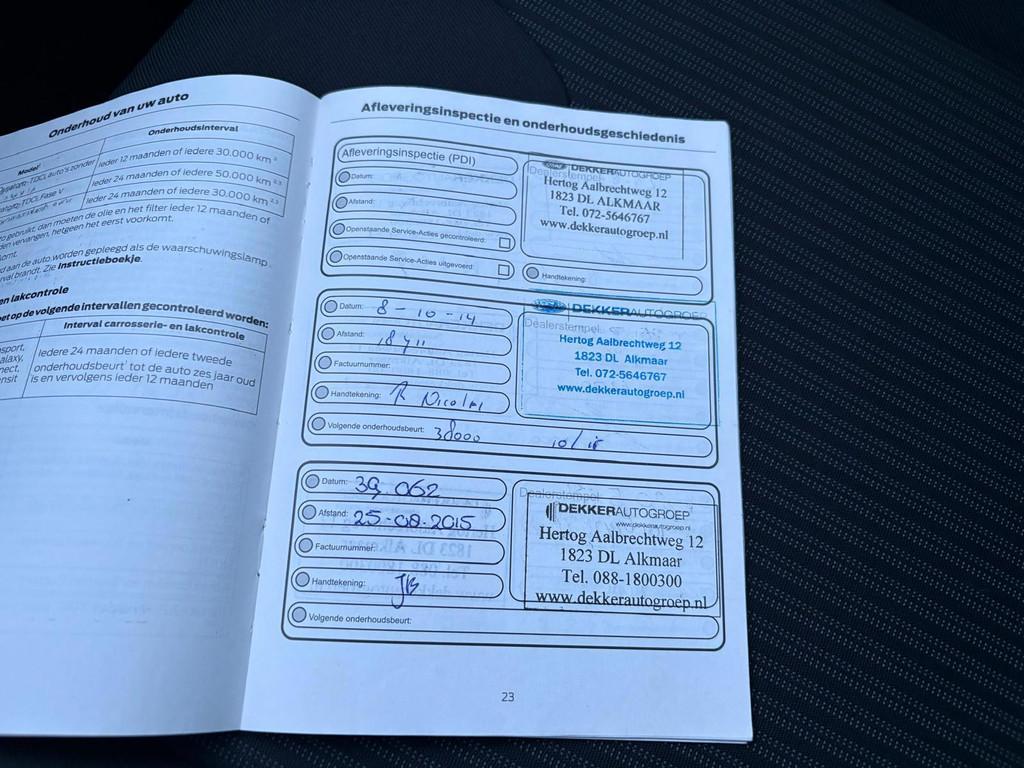 Onderhoud van uw auto
Model¹
Onderhoudsinterval
TDCi, auto's zonder
Ieder 12 maanden of iedere 30.000 km
Ieder 24 maanden of iedere 50.000 km
TDCi Fase V
Ieder 24 maanden of iedere 30.000 km
gebruikt, dan moeten de olie en het filter ieder 12 maanden of
vervangen, hetgeen het eerst voorkomt.
aan de auto worden gepleegd als de waarschuwingslamp
brandt. Zie Instructieboekje.
en lakcontrole
et op de volgende intervallen gecontroleerd worden:
Interval carrosserie- en lakcontrole
Iedere 24 maanden of iedere tweede
onderhoudsbeurt¹ tot de auto zes jaar oud
is en vervolgens ieder 12 maanden
Afleveringsinspectie en onderhoudsgeschiedenis
Afleveringsinspectie (PDI)
Datum:
Afstand:
Openstaande Service-Acties gecontroleerd:
Openstaande Service-Acties uitgevoerd:
Dealerstempel
DEKKERAUTOGROEP
Hertog Aalbrechtweg 12
1823 DL ALKMAAR
Tel. 072-5646767
www.dekkerautogroep.nl
Handtekening:
Datum: 8-10-14
Afstand: 18411
Factuurnummer:
Handtekening: R Nicolai
Volgende onderhoudsbeurt: 38000 10/15
DEKKERAUTOGROEP
Dealerstempel
Hertog Aalbrechtweg 12
1823 DL Alkmaar
Tel. 072-5646767
www.dekkerautogroep.nl
Datum: 39.062
Afstand: 25-08-2015
Factuurnummer:
Handtekening: JB
Volgende onderhoudsbeurt:
Dealerstempel
DEKKERAUTOGROEP
www.dekkerautogroep.nl
Hertog Aalbrechtweg 12
1823 DL Alkmaar
Tel. 088-1800300
www.dekkerautogroep.nl
23